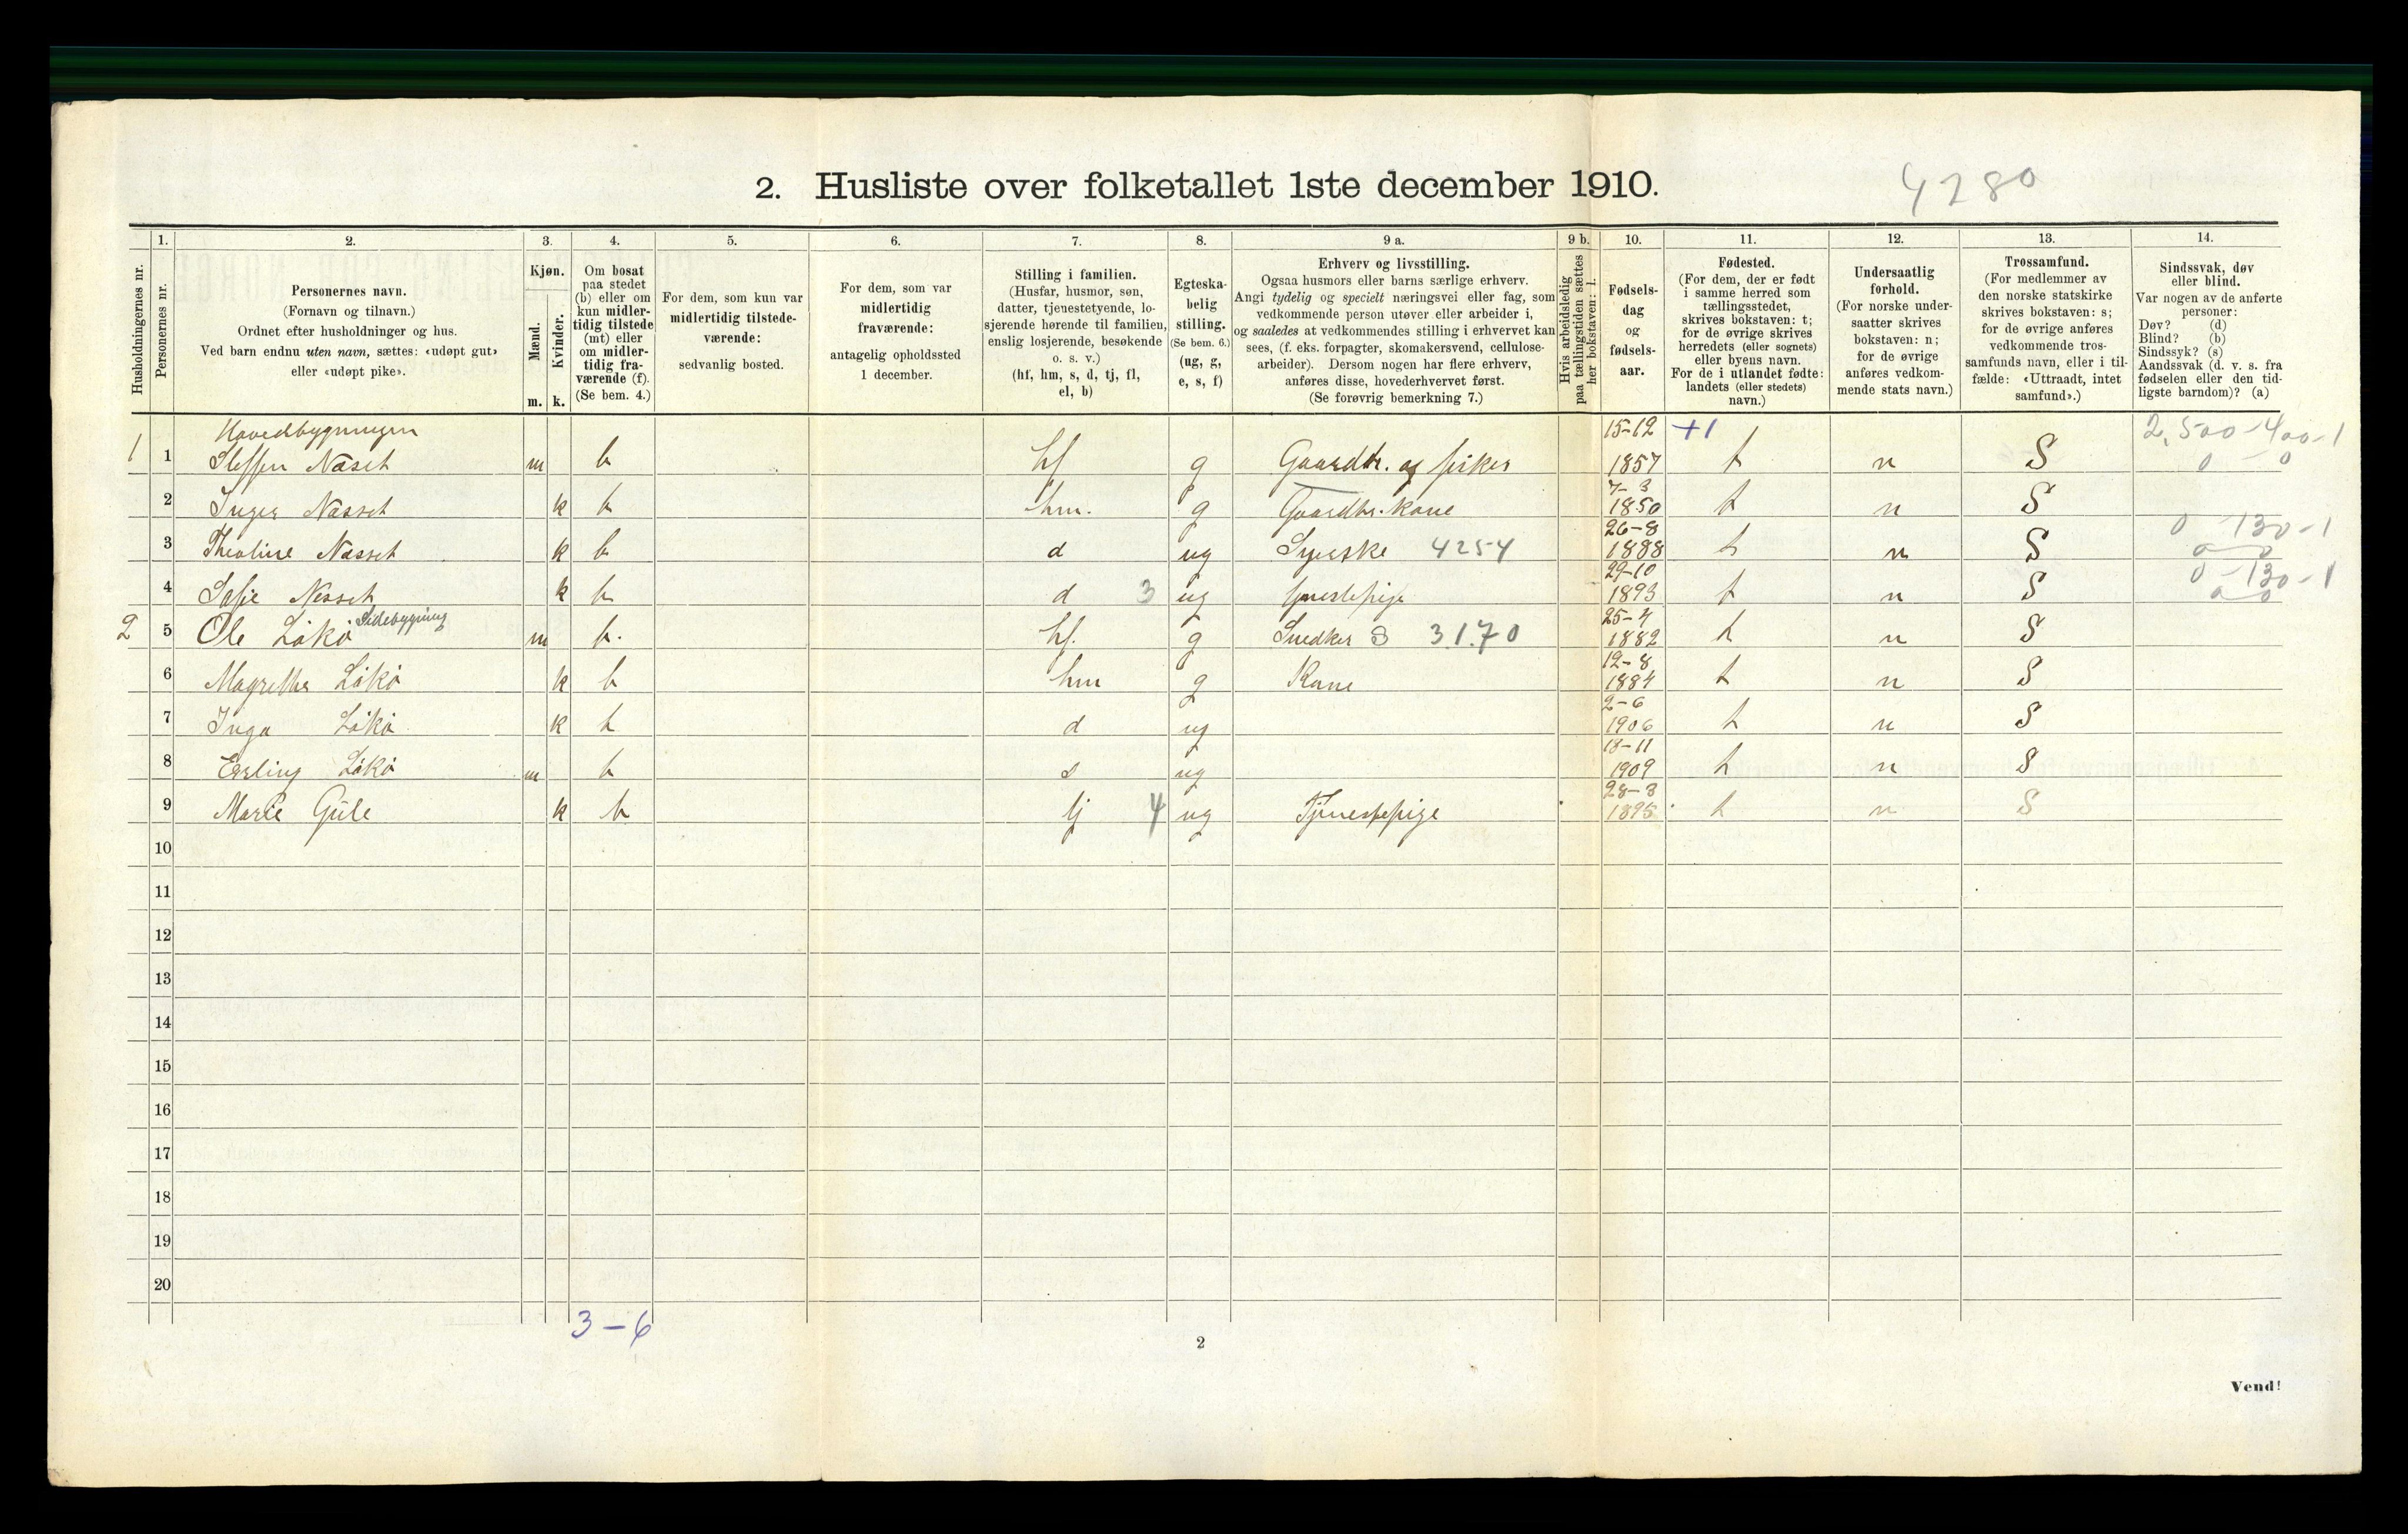 2. Husliste over folketallet 1ste december 1910.
4280
1. 2. 3. 4. 5. 6. 7. 8. 9 a. 9 b. 10. 11. 12. 13. 14.
Husholdningernes nr.
Personernes nr.
Personernes navn.
(Fornavn og tilnavn.)
Ordnet efter husholdninger og hus.
Ved barn endnu uten navn, sættes: «udøpt gut»
eller «udøpt pike».
Kjøn.
Mænd.
Kvinder.
m. k.
Om bosat
paa stedet
(b) eller om
kun midler-
tidig tilstede
(mt) eller
om midler-
tidig fra-
værende (f).
(Se bem. 4.)
For dem, som kun var
midlertidig tilstede-
værende:
sedvanlig bosted.
For dem, som var
midlertidig
fraværende:
antagelig opholdssted
1 december.
Stilling i familien.
(Husfar, husmor, søn,
datter, tjenestetyende, lo-
sjerende hørende til familien,
enslig losjerende, besøkende
o. s. v.)
(hf, hm, s, d, tj, fl,
el, b)
Egteska-
belig
stilling.
(Se bem. 6.)
(ug, g,
e, s, f)
Erhverv og livsstilling.
Ogsaa husmors eller barns særlige erhverv.
Angi tydelig og specielt næringsvei eller fag, som
vedkommende person utøver eller arbeider i,
og saaledes at vedkommendes stilling i erhvervet kan
sees, (f. eks. forpagter, skomakersvend, cellulose-
arbeider). Dersom nogen har flere erhverv,
anføres disse, hovederhvervet først.
(Se forøvrig bemerkning 7.)
Hvis arbeidsledig
paa tællingstiden sættes
her bokstaven: l.
Fødsels-
dag
og
fødsels-
aar.
Fødested.
(For dem, der er født
i samme herred som
tællingsstedet,
skrives bokstaven: t;
for de øvrige skrives
herredets (eller sognets)
eller byens navn.
For de i utlandet fødte:
landets (eller stedets)
navn.)
Undersaatlig
forhold.
(For norske under-
saatter skrives
bokstaven: n;
for de øvrige
anføres vedkom-
mende stats navn.)
Trossamfund.
(For medlemmer av
den norske statskirke
skrives bokstaven: s;
for de øvrige anføres
vedkommende tros-
samfunds navn, eller i til-
fælde: «Uttraadt, intet
samfund».)
Sindssvak, døv
eller blind.
Var nogen av de anførte
personer:
Døv? (d)
Blind? (b)
Sindssyk? (s)
Aandssvak (d. v. s. fra
fødselen eller den tid-
ligste barndom)? (a)
Hovedbygningen 15-12 +1 2,500-400-1
1 1 Steffen Næset m b hf g Gaardbr. og fisker 1857 t n S 0 0
7-3
2 Inger Næsset k b hm. g Gaardbr. kone 1850 t n S
26-8 0-130-1
3 Theoline Næsset k b d ug Syerske 4254 1888 t n S 0 0
29-10 0-130-1
4 Nesset k b d 3 ug 1893 t n S 0 0
Sidebygning 25-4
2 5 Ole Løkø m b. hf. g Snedker S 31.70 1882 t n S
12-8
6 Magrethe Løkø k b hm g Kone 1884 t n S
2-6
7 Inga Løkø k b d ug 1906 t n S
13-11
8 Erling Løkø m b s ug 1909 t n S
28-3
9 Marie Gule k b tj 4 ug Tjenestepige 1895 t n S
10
11
12
13
14
15
16
17
18
19
20
3-6
2
Vend!